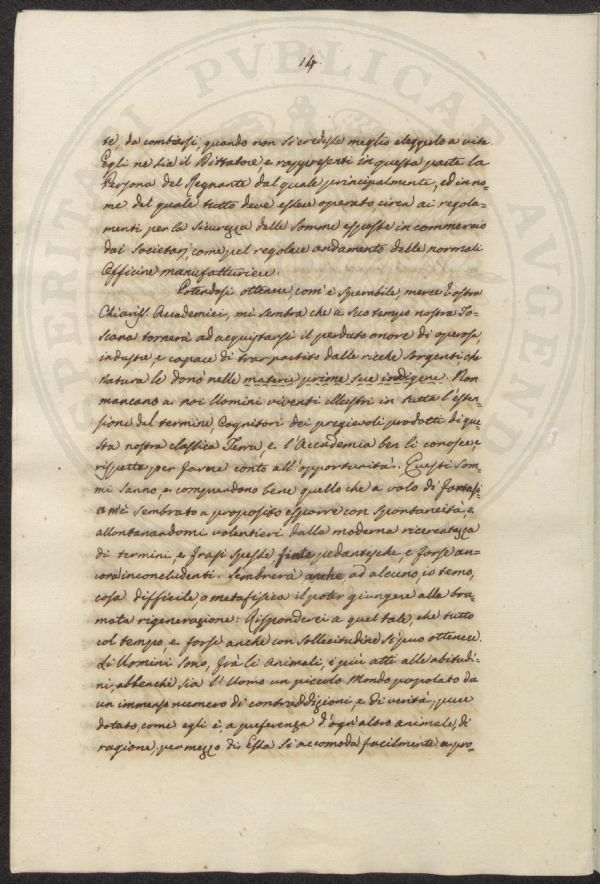 14.
te, da combiarsi, quando non si credesse meglio eleggerlo a vita.
Egli ne sia il Dittatore, e rappresenti in questa parte la
Persona del Regnante dal quale principalmente, ed in no=
me del quale tutto deve essere operato, circa ai regola=
menti per la sicurezza delle somme esposte in commercio
dai Societarj, come pel regolare andamento delle normali
Officine manufatturiere.
Potendosi ottenere, com'è sperabile, mercè
Chiariss. Accademici, mi sembra che a suo tempo nostra To=
scana tornerà ad acquistarsi il perduto onore di operosa,
industre, e capace di trar partito dalle ricche sorgenti, che
Natura le donò nelle materie prime sue indigene. Non
mancano a noi Uomini viventi illustri in tutta l'esten=
sione del termine, Cognitori dei pregievoli prodotti di que=
sta nostra classica Terra, e l'Accademia ben li conosce, e
rispetta, per farne conto all'opportunità. Questi som=
mi sanno, e comprendono bene quello che a volo di fantasi=
a m'è sembrato a proposito esporre con spontaneità, e
allontanandomi volentieri dalla moderna ricercatezza
di termini, e frasi spesse fiate pedantesche, e forse an=
cora inconcludenti. Sembrerà, anche ad alcuno, io temo,
cosa difficile, o metafisica il poter giungere alla bra=
mata rigenerazione: Risponderei a quel tale, che tutto
col tempo, e forse anche con sollecitudine si può ottenere.
Li Uomini sono, frà li Animali, i più atti alle abitudi=
ni, abbenchè sia l'Uomo un piccolo Mondo popolato da
un immenso numero di contraddizioni, e di verità, pure
dotato, come egli è, a preferenza d'ogn'altro animale, di
ragione, per mezzo di Essa si accomoda facilmente a pro=
PERITAT PVBLICAE AVEND